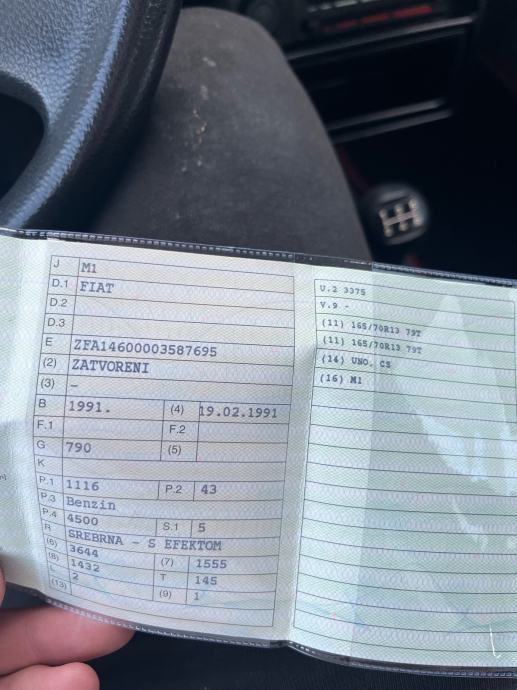 J M1
D.1 FIAT
D.2
D.3
E ZFA14600003587695
(2) ZATVORENI
(3) -
B 1991. (4) 19.02.1991
F.1 F.2
G 790 (5)
K
P.1 1116 P.2 43
P.3 Benzin
P.4 4500 S.1 5
R SREBRNA - S EFEKTOM
(6) 3644 (7) 1555
(8) 1432 T 145
L 2 (9) 1
(13)
U.2 3375
V.9 -
(11) 165/70R13 79T
(11) 165/70R13 79T
(14) UNO. CS
(16) M1